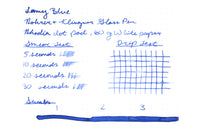 Rohrer + Klingner Glass Pen
Rhodia dot pad, 80 g White paper
Smear Test
Drop Test
5 seconds
10 seconds
20 seconds
30 seconds
Swabs
1 2 3